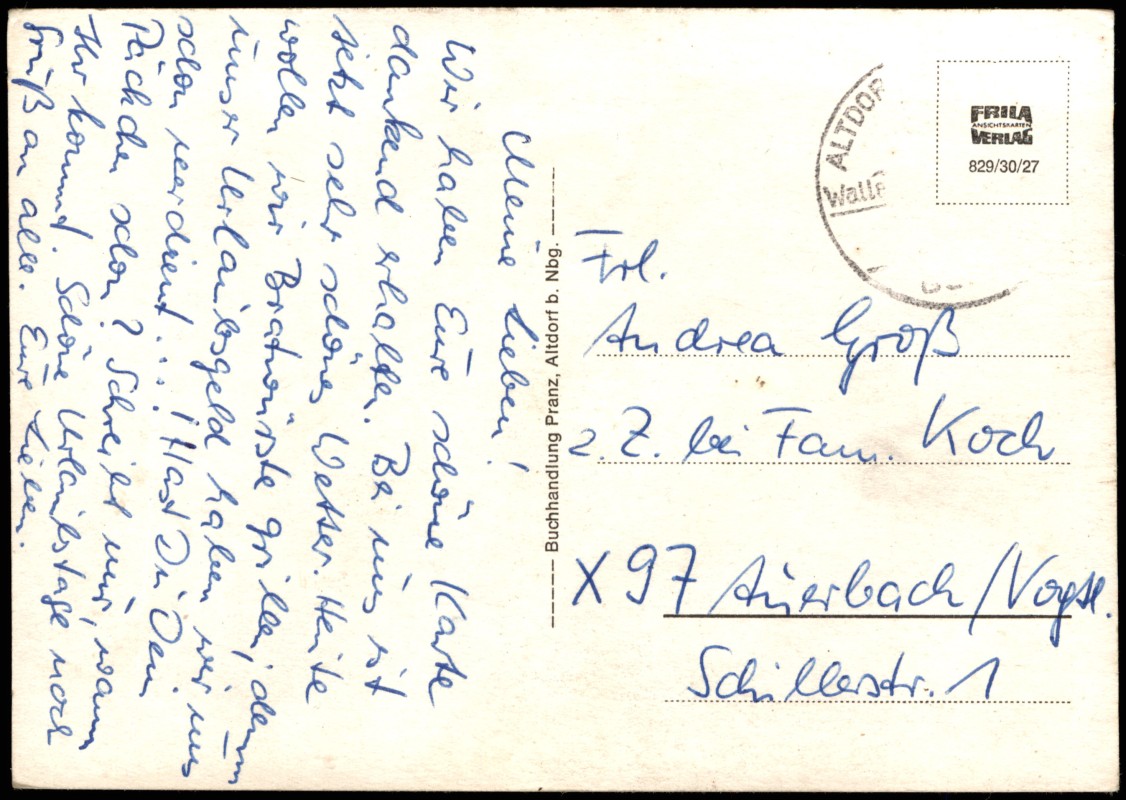 Meine Lieben!
Wir haben Eure schöne Karte
dankend erhalten. Bei uns ist
jetzt sehr schönes Wetter. Heute
wollen wir Bratwürste grillen, denn
unser Urlaubsgeld haben wir uns
schon verdient...! Hast Du Dein
Päckchen schon? Schreibt nur, wann
Ihr kommt. Schöne Urlaubstage noch
Gruß an alle. Eure Lieben.
Buchhandlung Pranz, Altdorf b. Nbg.
ALTDORF
FRILA
ANSICHTSKARTEN
VERLAG
829/30/27
Frl.
Andrea Groß
z. Z. bei Fam. Koch
X 97 Auerbach/Vogtl.
Schillerstr. 1